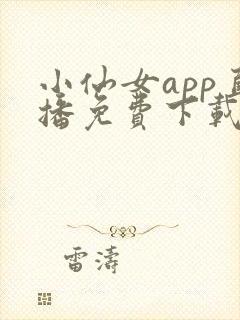 小仙女app
播免費下載
雷濤